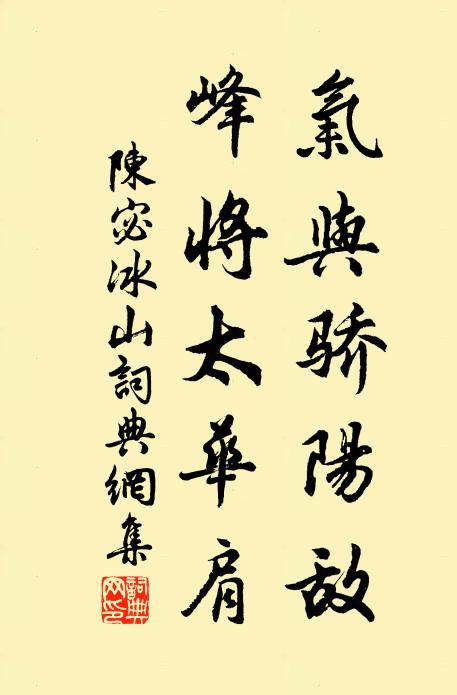 氣與骄陽敌
峰将太華肩
陳宓冰山詞典網集
詞典网印